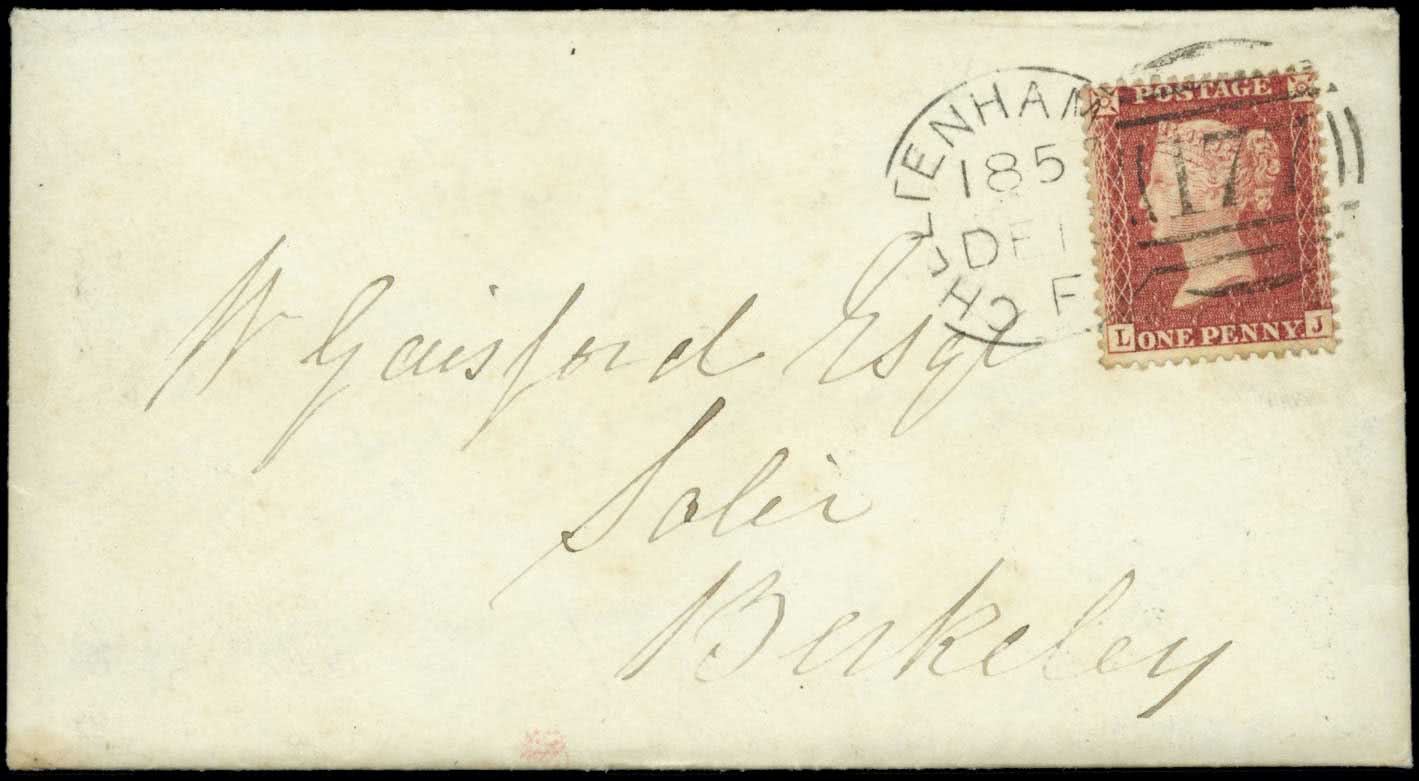 CHELTENHAM
185
DE 1
F
POSTAGE
177
L ONE PENNY J
W Gaisford Esqr
Solir
Berkeley